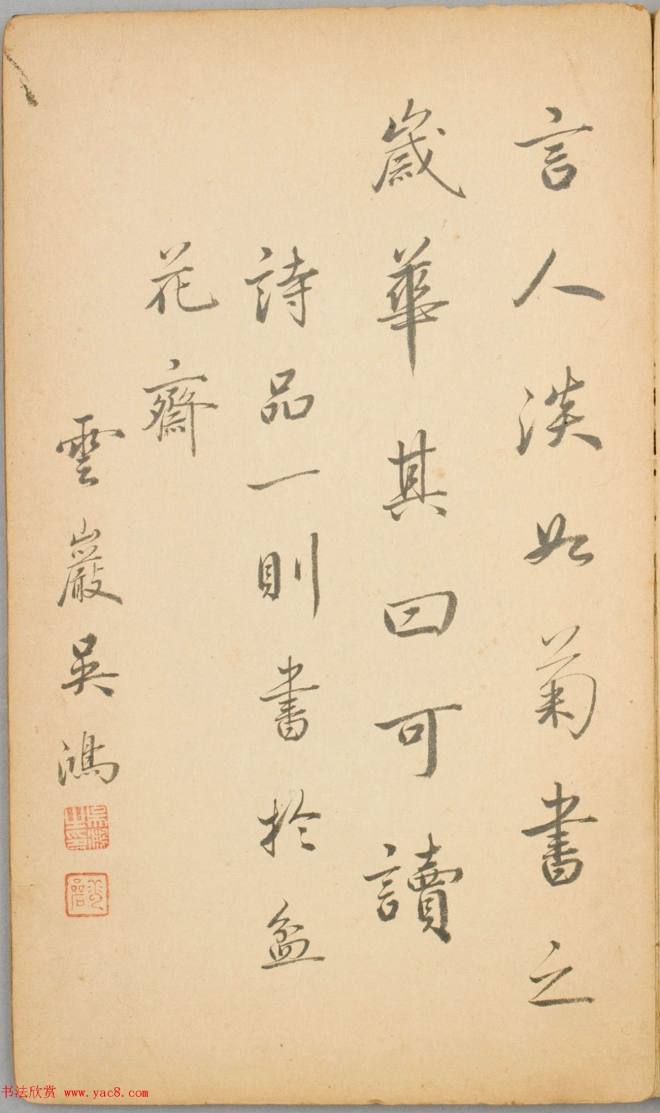 言人淡如菊書之
歲華其曰可讀
詩品一則書於盆
花齋
雲巖吳鴻
吳鴻之印
书法欣赏 www.yac8.com